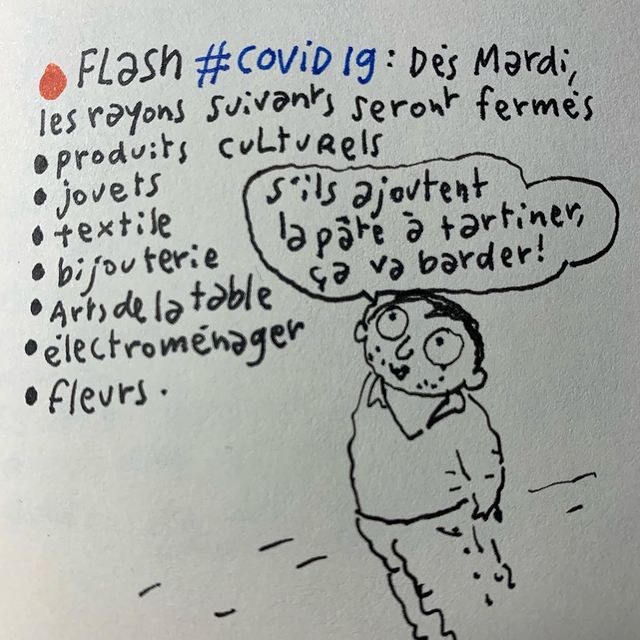 Flash #COVID19 : Dès Mardi,
les rayons suivants seront fermés
• produits culturels
• jouets
• textile
• bijouterie
• Arts de la table
• électroménager
• fleurs.
s'ils ajoutent
la pâte à tartiner,
ça va barder !